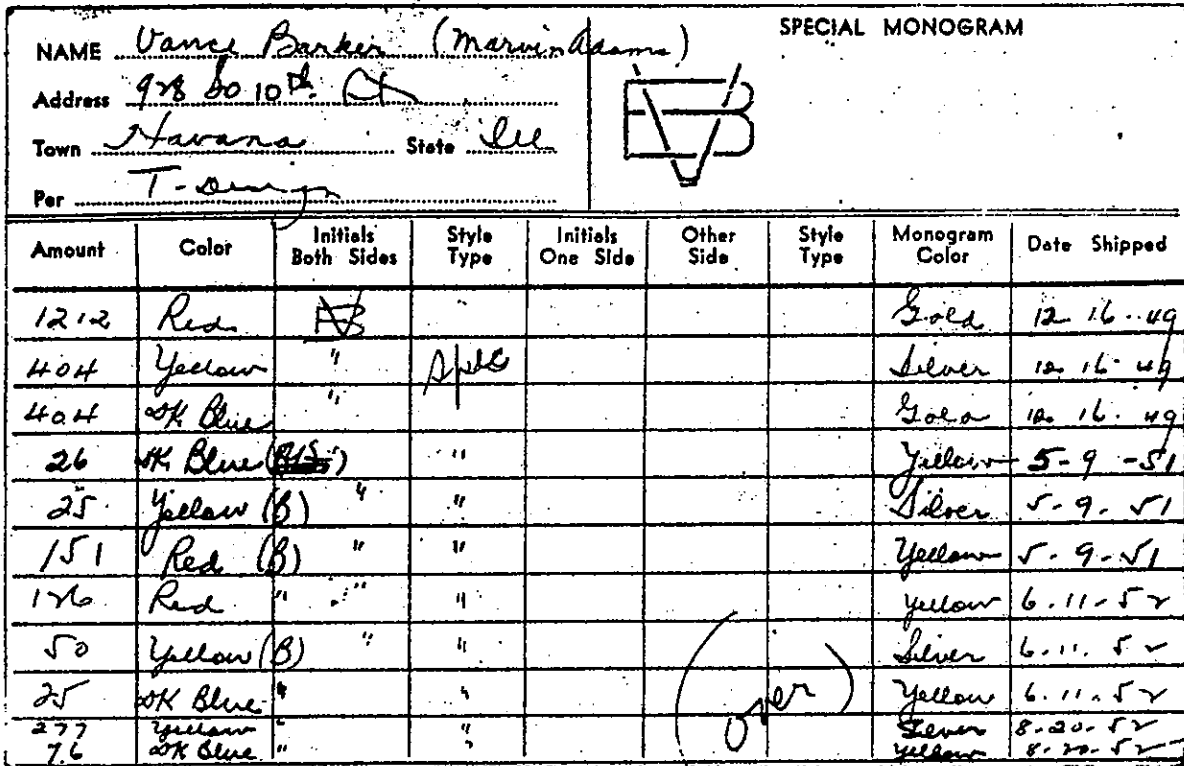 SPECIAL MONOGRAM
NAME Vance Barker (Marvin Adams)
Address 928 So 10th
Town Havana State Ill
Per T-Design
Amount Color Initials Both Sides Style Type Initials One Side Other Side Style Type Monogram Color Date Shipped
1212 Red Gold 12 16 - 49
404 Yellow " Silver 12 16 - 49
404 DK Blue " Gold 12 16 - 49
26 DK Blue " Yellow 5-9-51
25 Yellow (B) " " Silver 5-9-51
151 Red (B) " " Yellow 5-9-51
126 Red " " " Yellow 6-11-52
50 Yellow (B) " " Silver 6-11-52
25 DK Blue " " Yellow 6-11-52
277 Yellow " " Silver 8-20-52
76 DK Blue " " Yellow 8-20-52
(over)